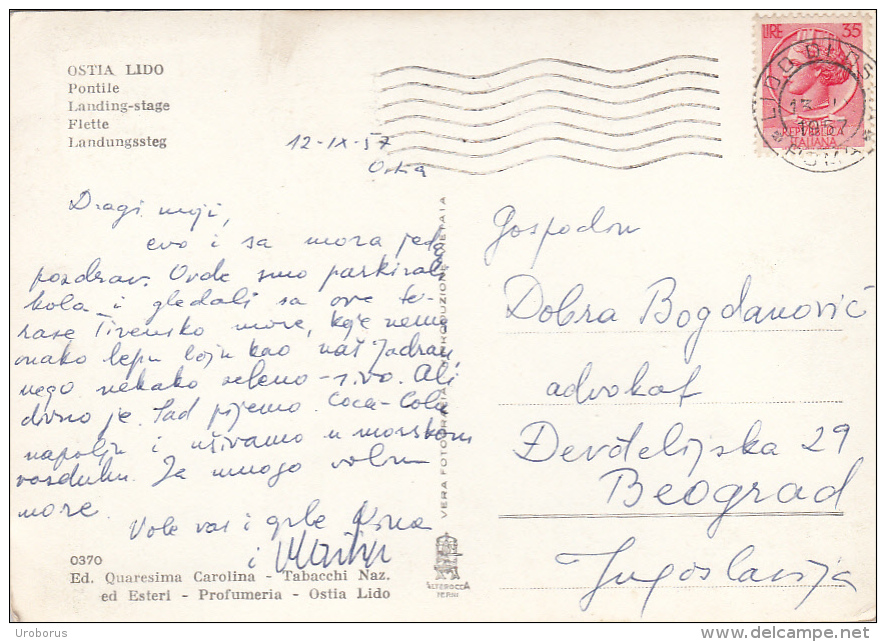 OSTIA LIDO
Pontile
Landing-stage
Flette
Landungssteg
12-IX-57
Ostia
Dragi moji,
evo i sa mora jedan
pozdrav. Ovde smo parkirali
kola i gledali sa ove te-
rase Tirensko more, koje nema
onako lepu boju kao naš Jadran
nego nekako zeleno-sivo. Ali
divno je. Sad pijemo Coca-Cola
napolju i uživamo u morskom
vazduhu. Ja mnogo volim
more.
Vole vas i grle
i
0370
Ed. Quaresima Carolina - Tabacchi Naz.
ed Esteri - Profumeria - Ostia Lido
VERA FOTOGRAFIA - RIPRODUZIONE VIETATA
ALTEROCCA
TERNI
LIRE 35
REPVBBLICA
ITALIANA
LIDO DI OSTIA
1957
ROMA
Gospodin
Dobra Bogdanović
advokat
Đevđelijska 29
Beograd
Jugoslavija
Uroborus
http://www.delcampe.net